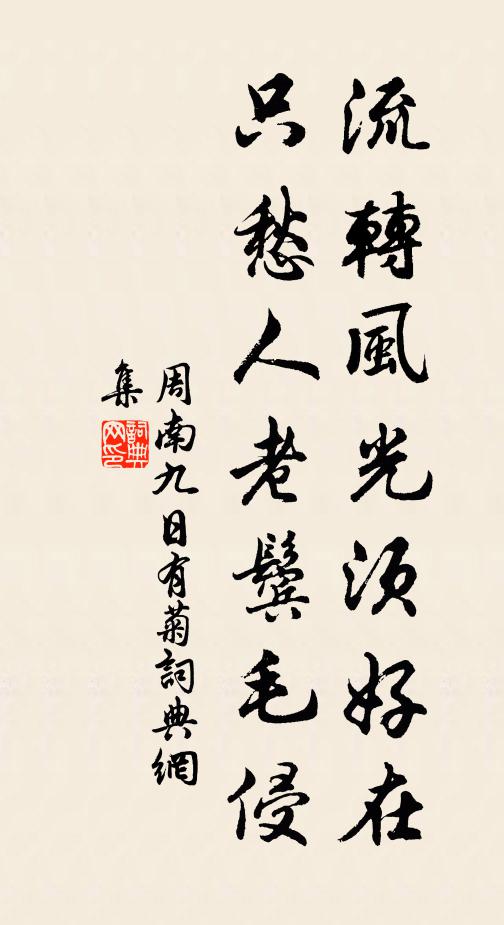 流轉風光須好在
只愁人老鬢毛侵
周南九日有菊詞典網
集
詞典
网印